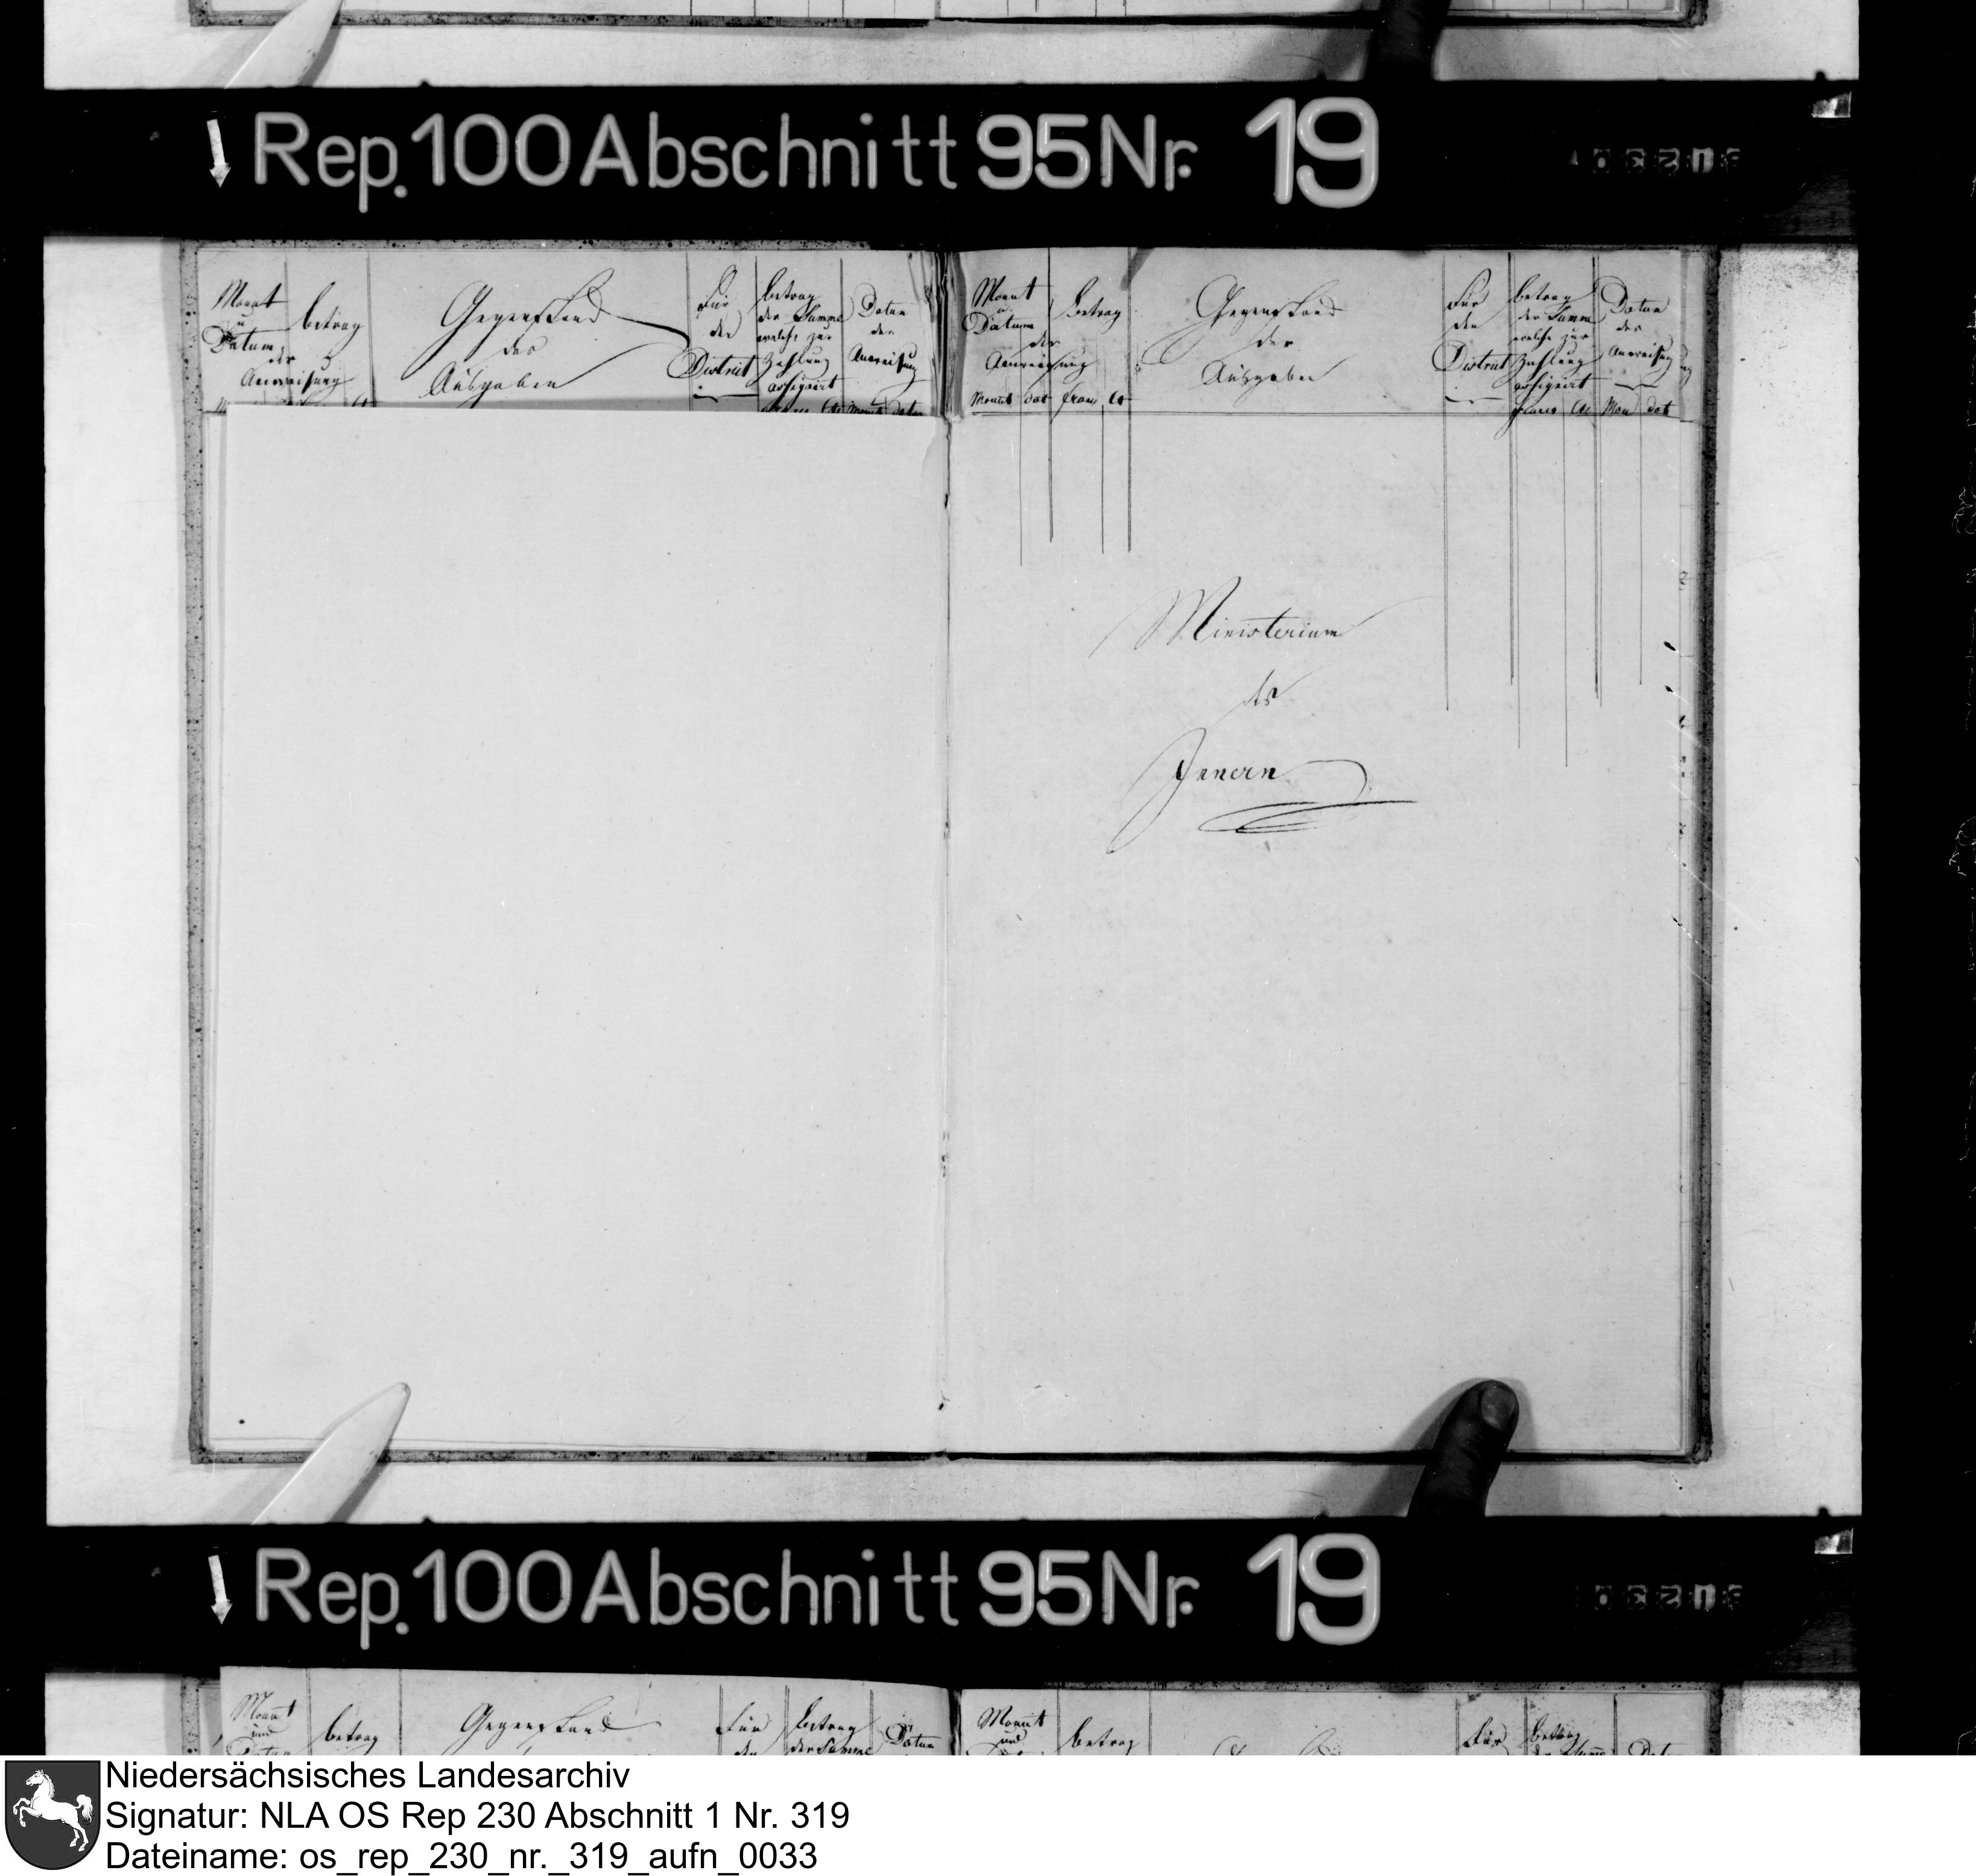 Rep. 100 Abschnitt 95 Nr. 19
Monat
u
Datum
der
Anweisung
betrag
Gegenstand
der
Ausgaben
Für
den
District
betrag
der Summe
welche zur
Zahlung
assignirt
Datum
der
Anweisung
Monat
u
Datum
der
Anweisung
Monat dat
Betrag
franc Ct
Gegenstand
der
Ausgaben
Für
den
District
betrag
der Summe
welche zur
Zahlung
assignirt
francs Ct
Datum
der
Anweisung
Mon dat
Ministerium
des
Innern
Rep. 100 Abschnitt 95 Nr. 19
Monat
und
betrag
Gegenstand
Für
den
Betrag
der Summe
Datum
Monat
und
betrag
Für
betrag
Niedersächsisches Landesarchiv
Signatur: NLA OS Rep 230 Abschnitt 1 Nr. 319
Dateiname: os_rep_230_nr._319_aufn_0033